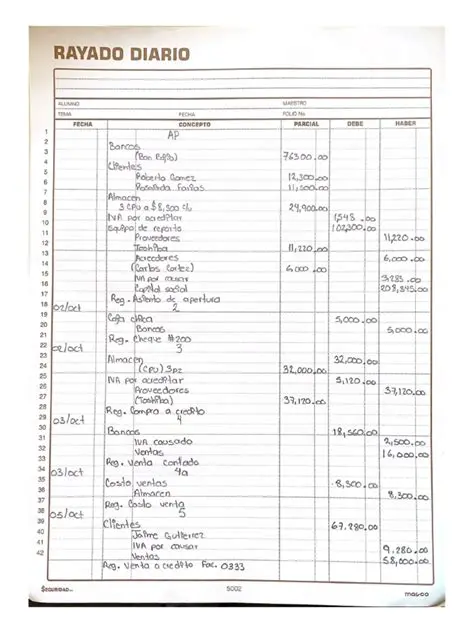 RAYADO DIARIO
ALUMNO MAESTRO
TEMA FECHA FOLIO No.
FECHA CONCEPTO PARCIAL DEBE HABER
1 AP
2 Bancos
3 76300.00
4 Clientes
5 Roberto Gomez 12,300.00
6 Farias 11,500.00
7 Almacen
8 3 CPU a $8,300 c/u 24,900.00
9 IVA por acreditar 1,548.00
10 Equipo de reparto 102,300.00
11 Proveedores 11,220.00
12 Toshiba 11,220.00
13 Acreedores 6,000.00
14 (Carlos Cortez) 6,000.00
15 IVA por causar 3,285.00
16 Capital social 208,345.00
17 Reg. Asiento de apertura
18 02/oct 2
19 Caja chica 5,000.00
20 Bancos 5,000.00
21 Reg. Cheque #200
22 02/oct 3
23 Almacen 32,000.00
24 (CPU) 3pz 32,000.00
25 IVA por acreditar 5,120.00
26 Proveedores 37,120.00
27 (Toshiba) 37,120.00
28 Reg. Compra a credito
29 03/oct 4
30 Bancos 18,560.00
31 IVA causado 2,500.00
32 Ventas 16,000.00
33 Reg. Venta contado
34 03/oct 4a
35 Costo ventas 8,300.00
36 Almacen 8,300.00
37 Reg. Costo venta
38 05/oct 5
39 Clientes 67.280.00
40 Jaime Gutierrez
41 IVA por causar 9.280.00
42 Ventas 58,000.00
Reg. Venta a credito Fac. 0333
SEGURIDAD 5002 masco